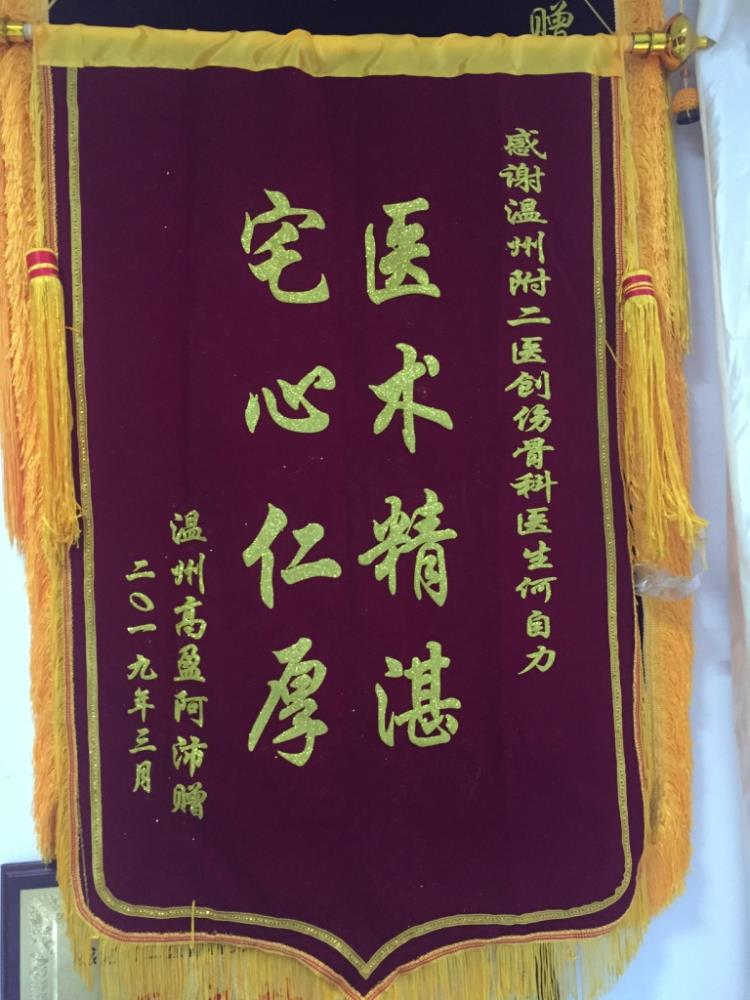 感谢温州附二医创伤骨科医生何自力
医术精湛
宅心仁厚
温州高盈阿沛赠
二〇一九年三月
赠